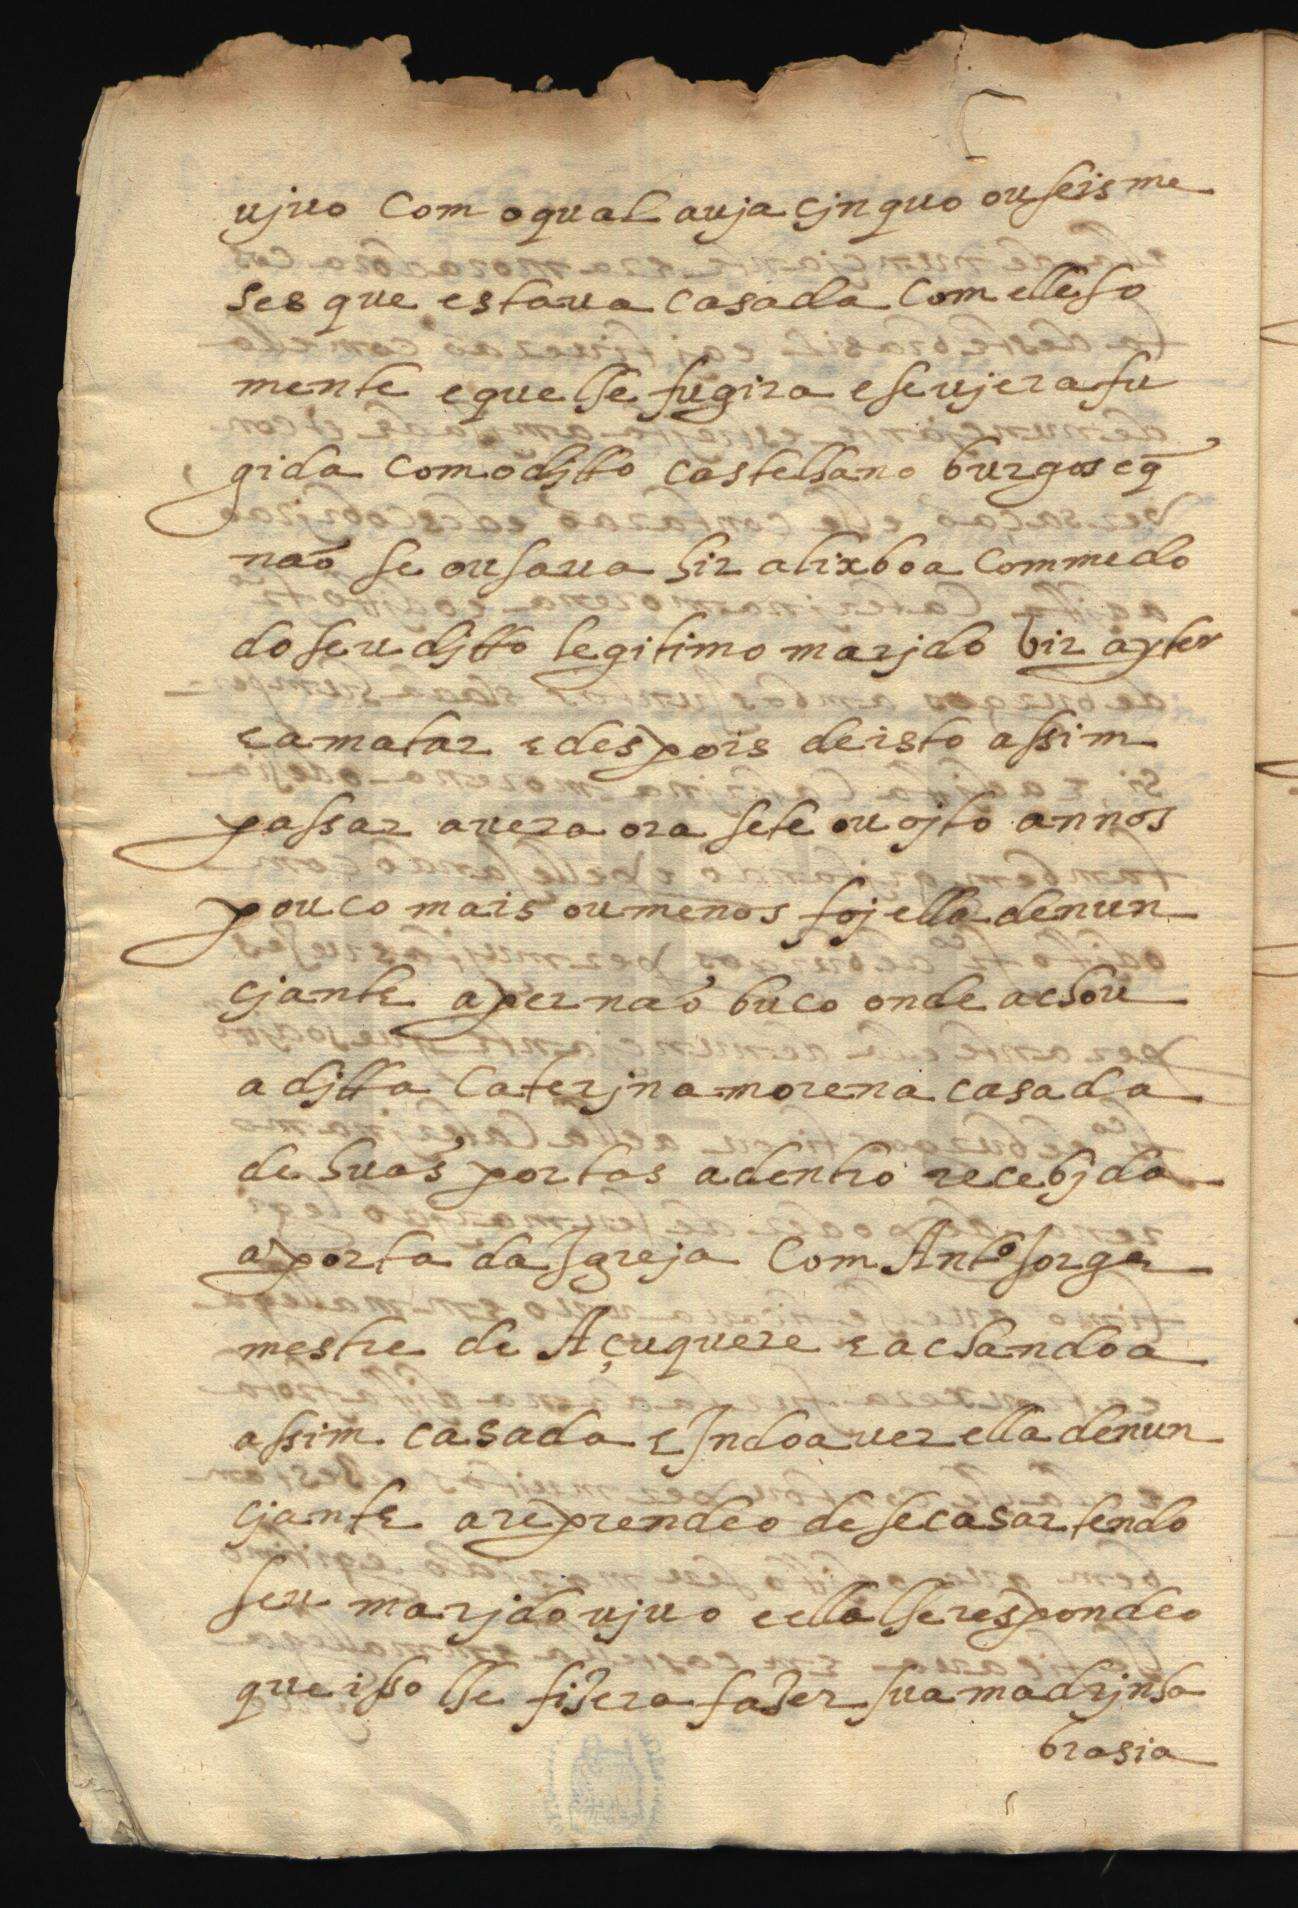 ujuo com o qual auja cjnquo ou seis me
ses que estaua casada com elle so
mente e que lhe fugira e se ujera fu
gida com o djtto castelhano burgos e q̃
não se ousaua hir a lixboa com medo
do seu djtto legitimo marjdo hir a ter
e a matar e despois de isto assim
passar auera ora sete ou ojto annos
pouco mais ou menos foj ella denun
cjante a pernãobuco onde achou
a djtta Caterjna morena casada
de suas portas adentro recebjda
a porta da Igreja com Antº Jorge
mestre de Açuquere e achandoa
assim casada e Indoa uer ella denun
cjante a reprendeo de se casar tendo
seu marjdo ujuo e ella lhe respondeo
que isso lhe fizera fazer sua madrjnha
brasia